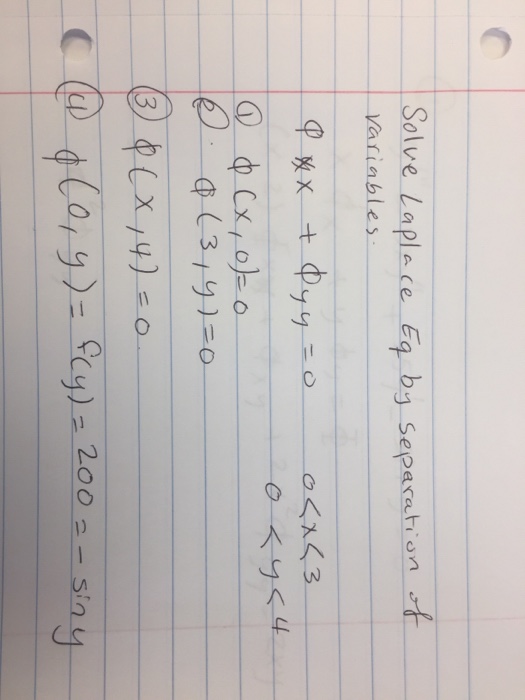 Solve Laplace Eq by separation of
variables.
φxx + φyy = 0 0<x<3
0<y<4
① φ(x,0)=0
②. φ(3,y)=0
③ φ(x,4)=0.
④ φ(0,y)= f(y)= 200 = - sin y